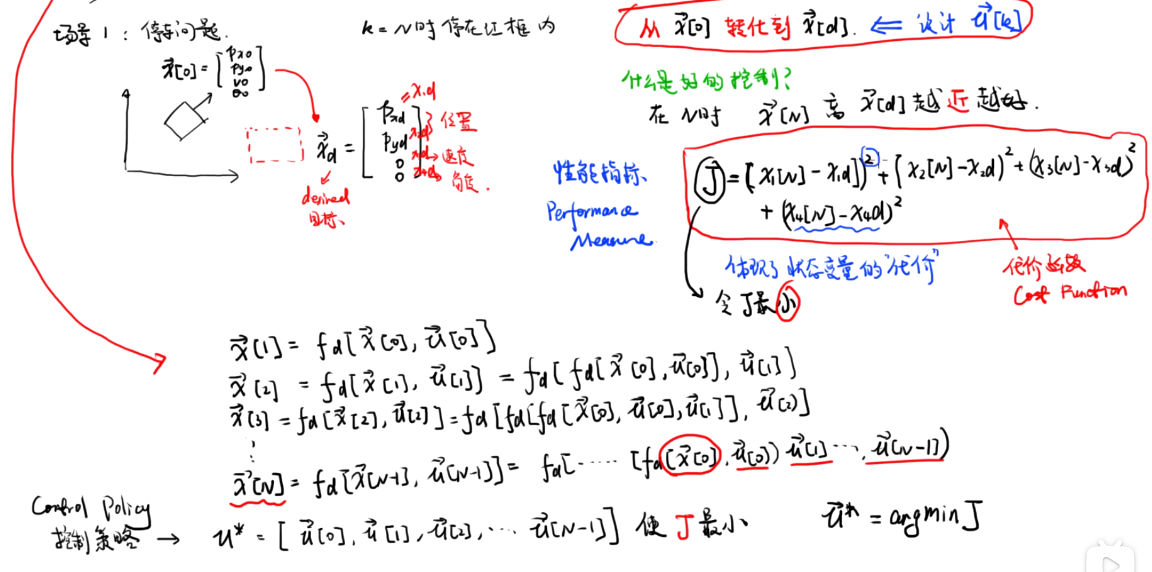 场景1：停车问题.
k=N时停在红框内
从 x⃗[0] 转化到 x⃗[d]. ⇐ 设计 u⃗[k]
x⃗[0] = [px0 py0 v0 θ0]
什么是好的控制？
在N时 x⃗[N] 离 x⃗[d] 越近越好.
x⃗d = [pxd pyd 0 0]
=x1d
位置
速度
角度.
desired
目标、
性能指标、
Performance
Measure
J = [x1[N]-x1d])² + [x2[N]-x2d)² + (x3[N]-x3d)²
+ (x4[N]-x4d)²
体现了状态变量的"代价"
代价函数
Cost Function
令J最小
x⃗[1] = fd[x⃗[0], u⃗[0]]
x⃗[2] = fd[x⃗[1], u⃗[1]] = fd[fd[x⃗[0], u⃗[0]], u⃗[1]]
x⃗[3] = fd[x⃗[2], u⃗[2]] = fd[fd[fd[x⃗[0], u⃗[0], u⃗[1]], u⃗[2]]
⋮
x⃗[N] = fd[x⃗[N-1], u⃗[N-1]] = fd[······[fd[x⃗[0], u⃗[0]) u⃗[1]···, u⃗[N-1])
Control Policy
控制策略 → u* = [u⃗[0], u⃗[1], u⃗[2], ··· u⃗[N-1]] 使J最小
u⃗* = argmin J